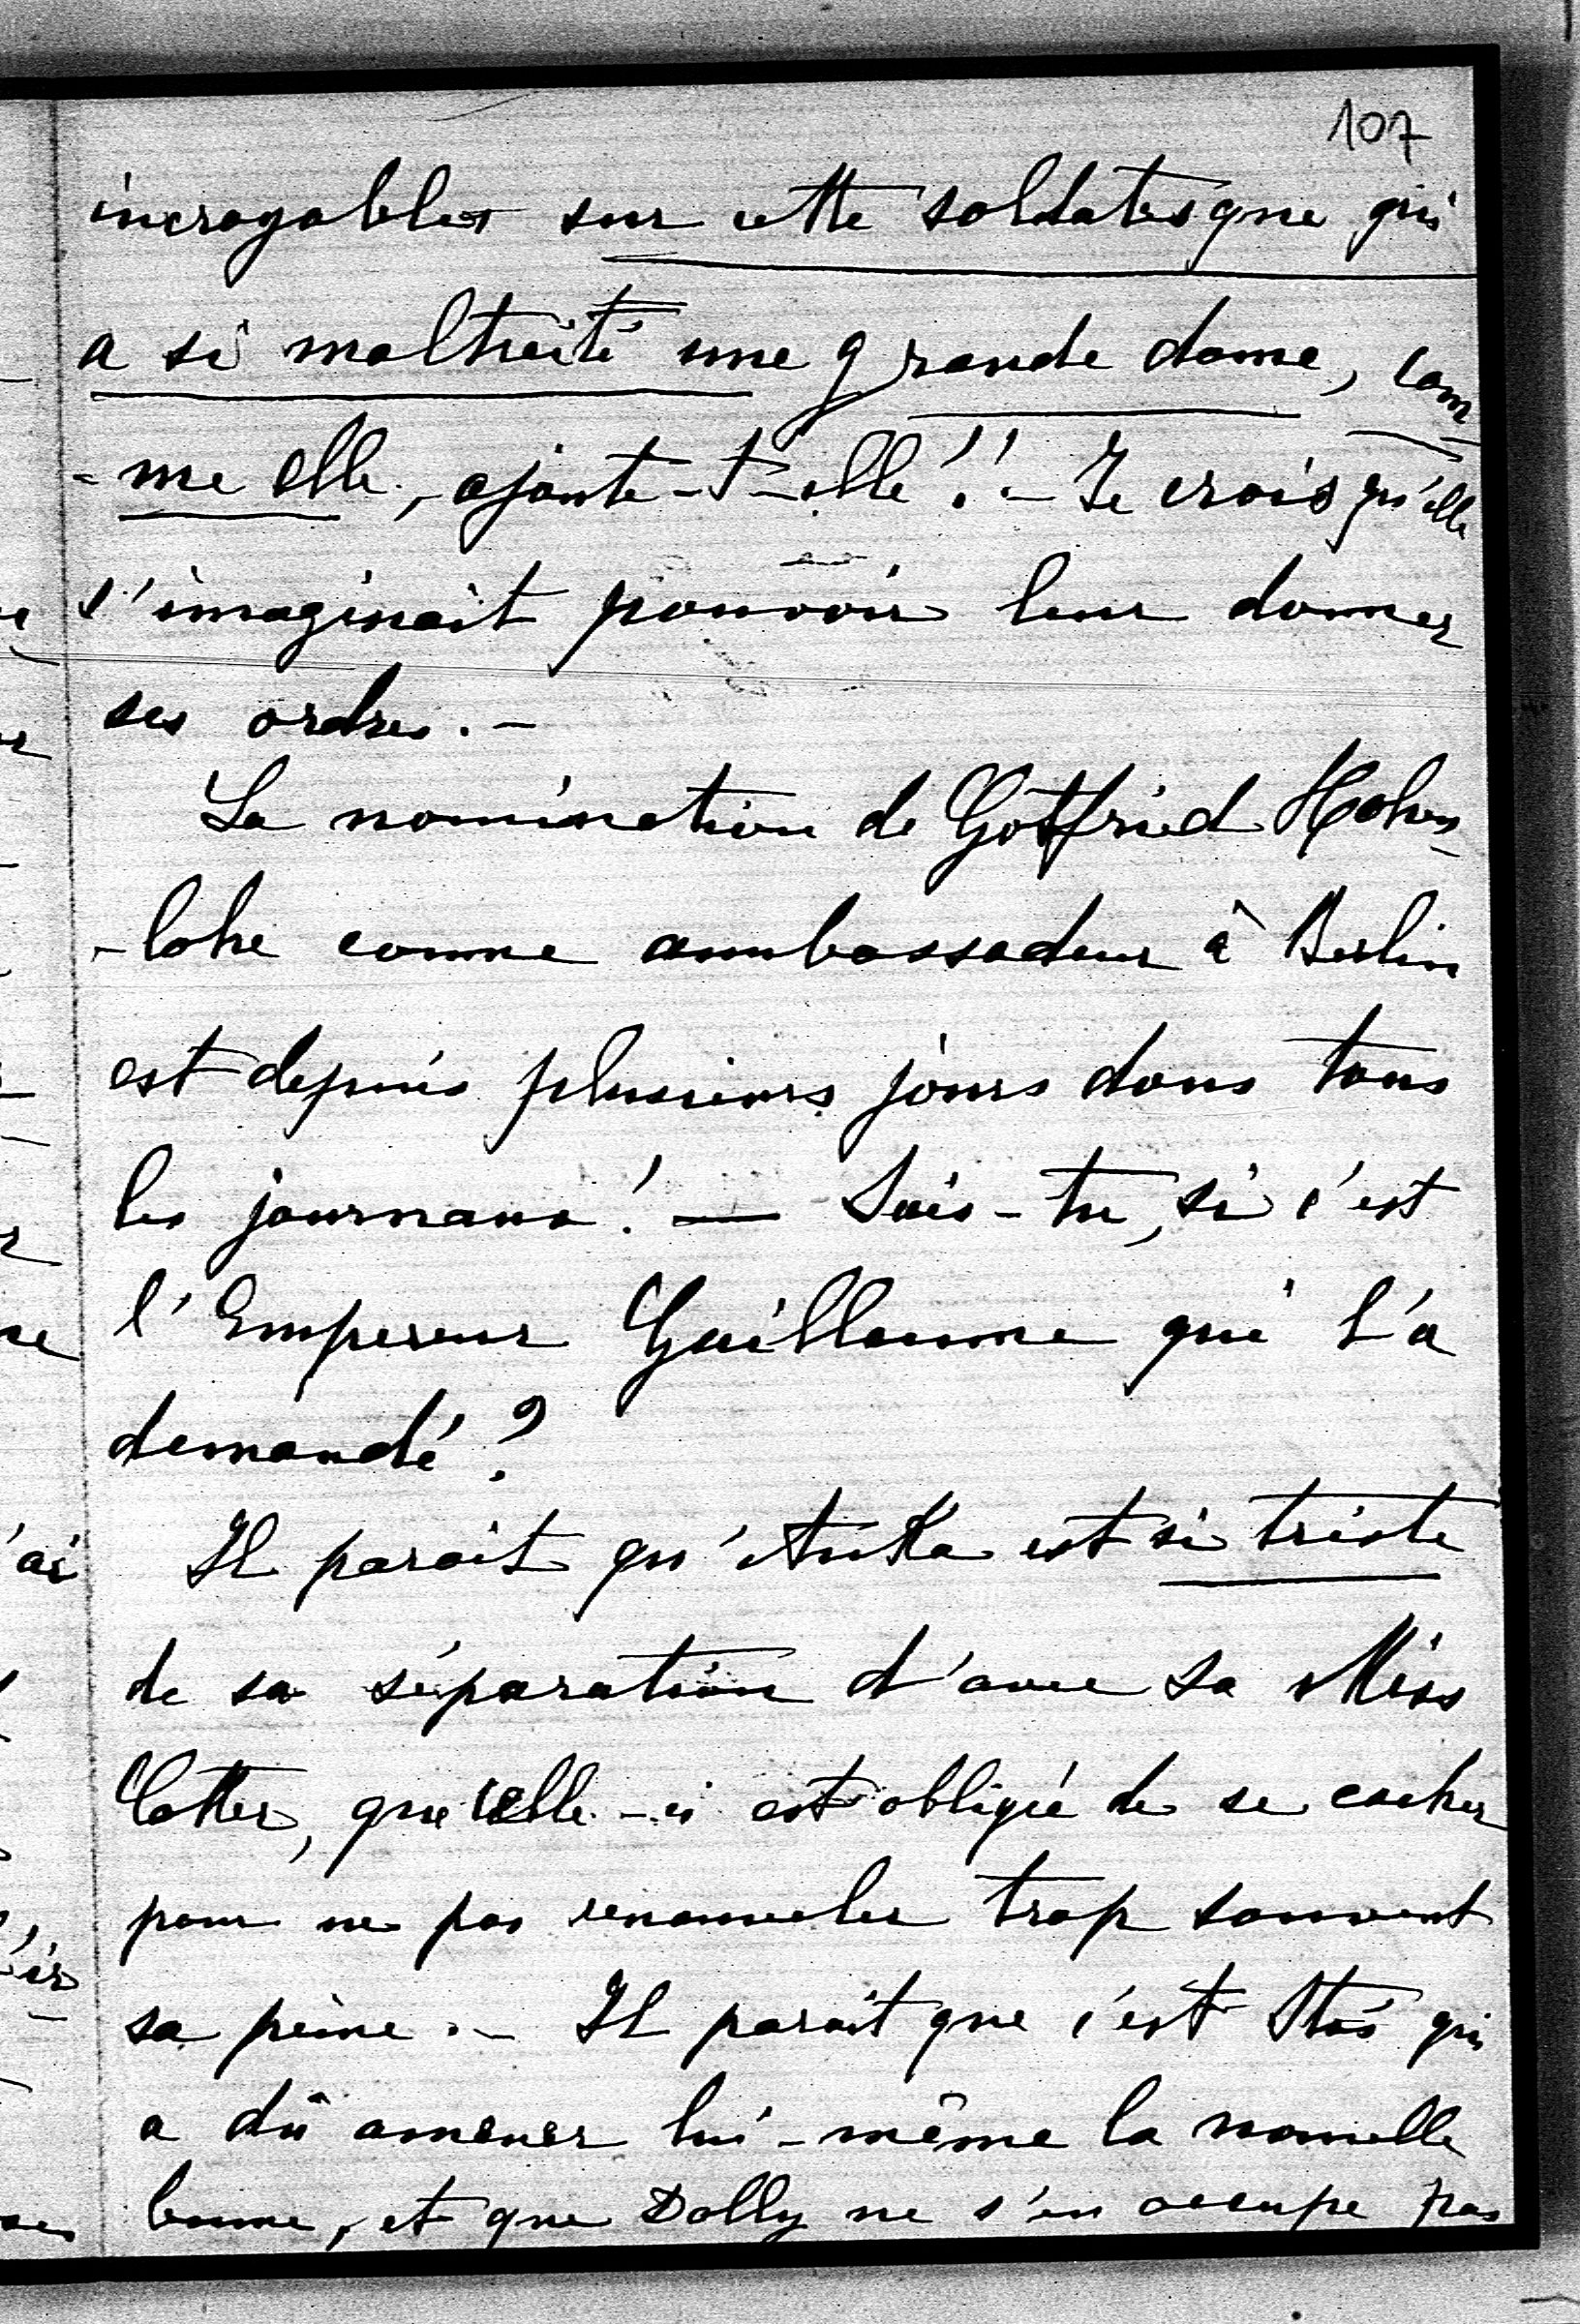 107
incroyables sur cette soldatesque qui
a si maltraité une grande dame, com
-me elle, - ajoute-t-elle!! - Je crois qu'elle
s'imaginait pouvoir leur donner
ses ordres. -
La nomination de Gotfried Hohen
-lohe comme ambassadeur à Berlin
est depuis plusieurs jours dans tous
les journaux! — Sais-tu, si c'est
l'Empereur Guillaume qui l'a
demandé?
Il parait qu'Anka est si triste
de sa séparation d'avec sa Miss
Cotter, que celle-ci est obligée de se cacher
pour ne pas renouveler trop souvent
sa peine. - Il parait que c'est Staś qui
a dû amener lui-même la nouvelle
bonne, et que Dolly ne s'en occupe pas